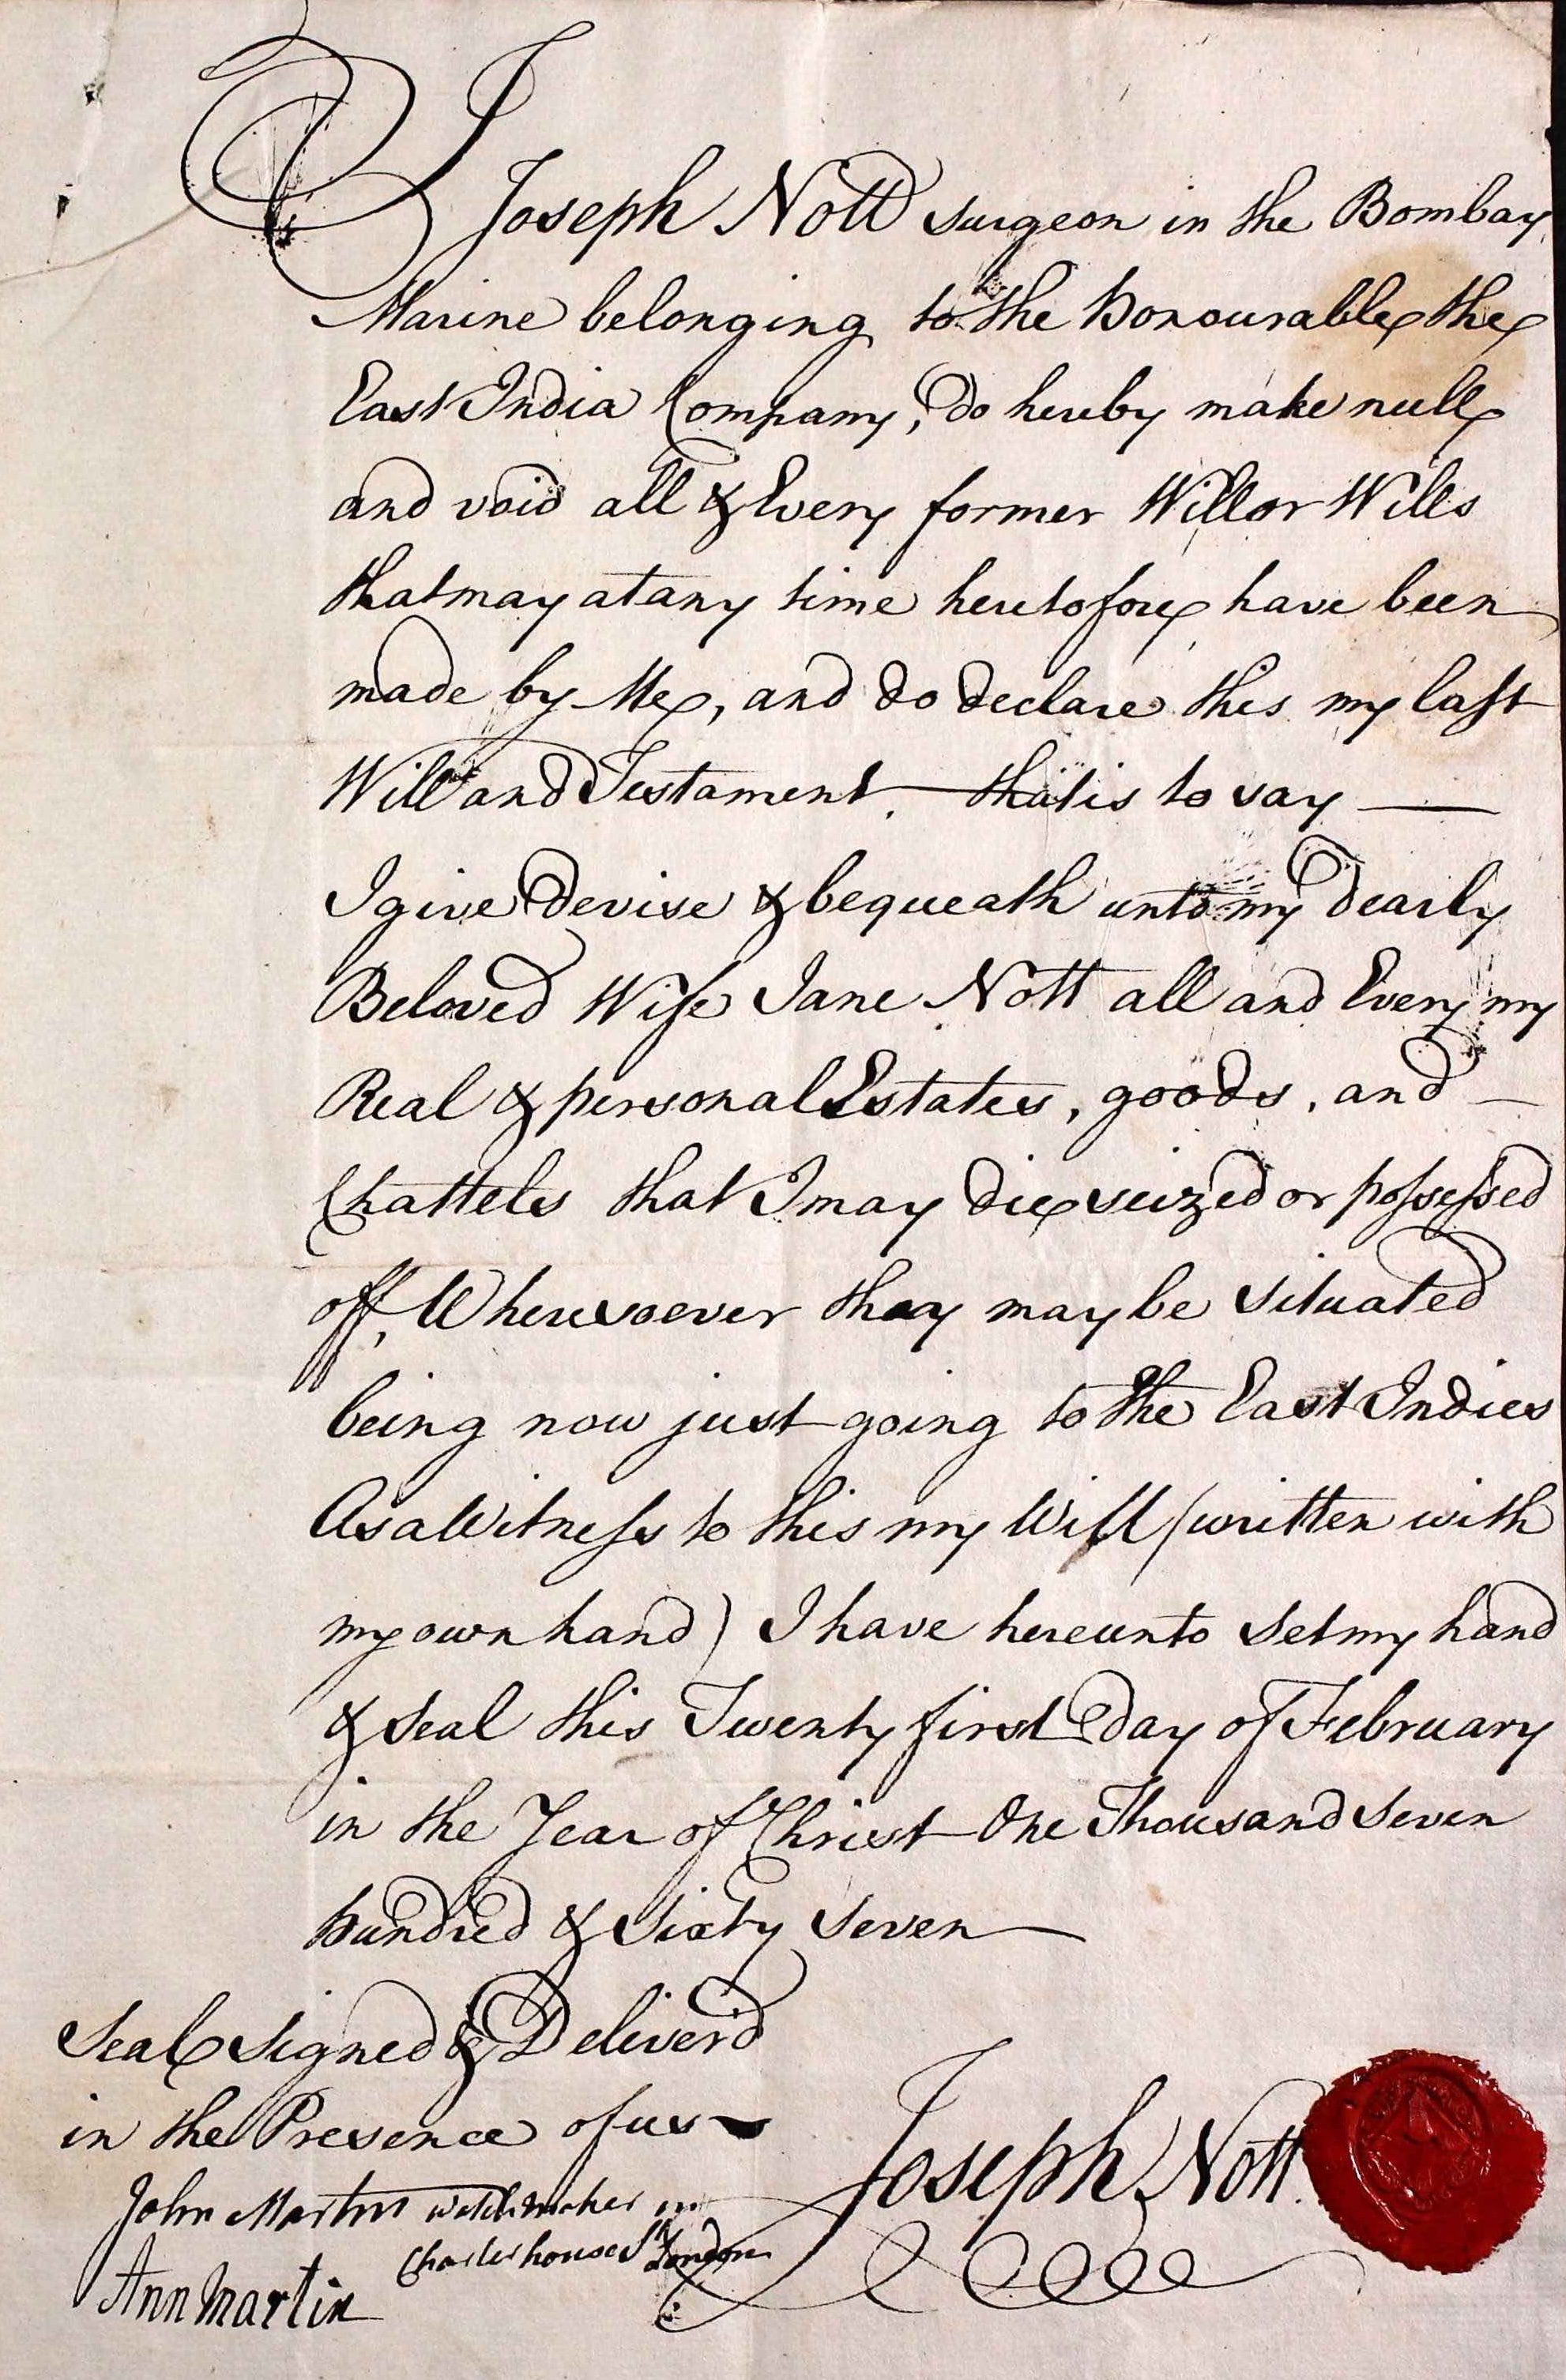 I
Joseph Nott surgeon in the Bombay
Marine belonging to the Honourable the
East India Company, do hereby make null
and void all & Every former Will or Wills
that may at any time heretofore have been
made by Me, and do declare this my last
Will and Testament. — that is to say —
I give Devise & bequeath unto my dearly
Beloved Wife Jane Nott all and Every my
Real & personal Estates, goods, and —
Chattels that I may die seized or possessed
off, Wheresoever they may be situated
being now just going to the East Indies
As a Witness to this my Will (written with
my own hand) I have hereunto set my hand
& seal this Twenty first Day of February
in the Year of Christ One Thousand seven
hundred & sixty seven —
Seal Signed & Deliver'd
in the Presence of us
Joseph Nott
John Martin watchmaker in
Charterhouse St London
Ann Martin